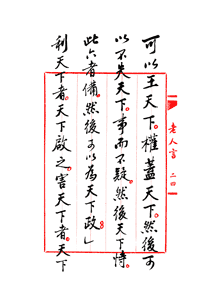 可以王天下。權蓋天下。然後可
以不失天下。事而不疑。然後天下恃。
此六者備。然後可以為天下政」
利天下者。天下啟之。害天下者。天下
老人言 二四